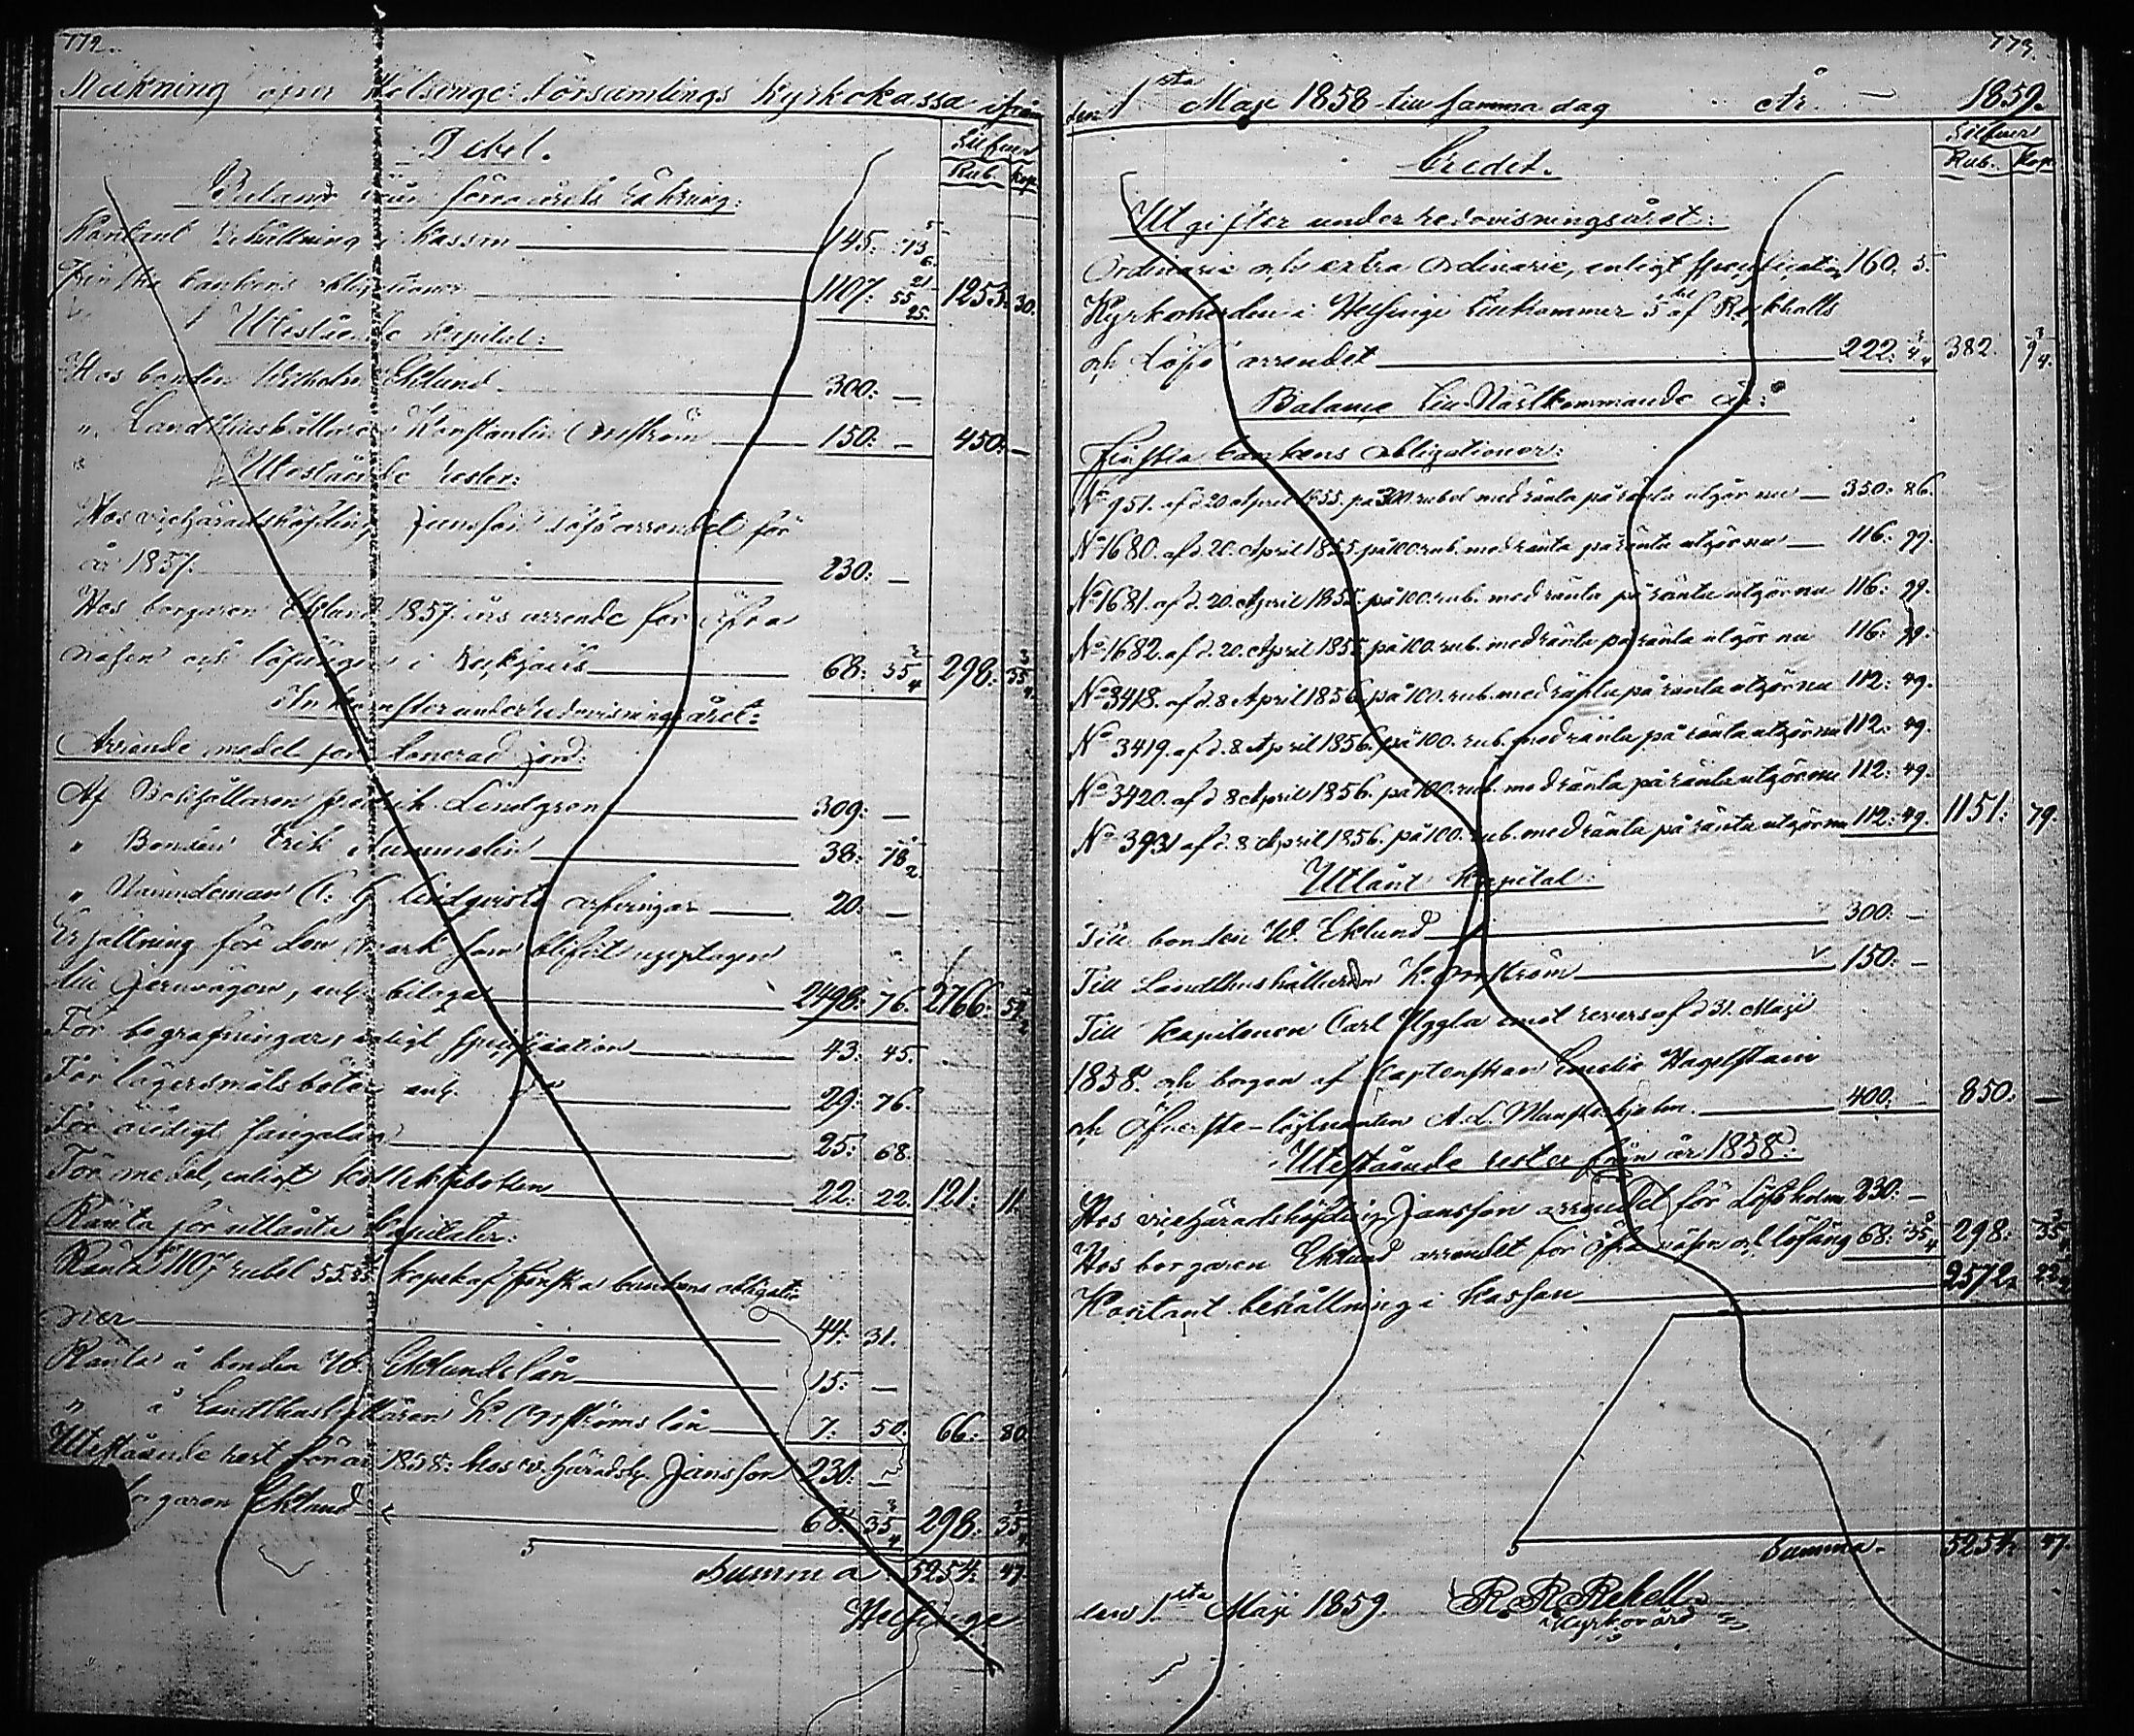 772.
Räkning öfver Helsinge Församlings Kyrkokassa ifrån
Debet.
Silfver
Rub. Kop.
Balance från förra årets räkning:
Kontant behållning i kassan 145: 73 5/6
Finska bankens obligationer 1107: 55 21/25 1253: 30.
Utestående kapital:
Hos bonden Wilhelm Eklund 300: —
" Landthushållaren Konstantin Örnström 150: — 450: —
Utestående rester:
Hos viceHäradshöfding Jansson Löfö arrendet för
år 1857. 230: —
Hos borgaren Eklund 1857 års arrende för Öfra
näsen och löfängen i Rekhals 68: 35 3/4 298: 35 3/4
Inkomster under redovisningsåret:
Arrende medel för donerad jord:
Af Bokhållaren Fredrik Lindgren 309: —
" Bonden Erik Nummelin 38: 78 1/2
" Nämndeman C. G. Lindqvists arfvingar 20: —
Ersättning för den mark som blifvit upptagen
till Jernvägen, enl. bilaga 2498: 76. 2766: 54 1/2
För begrafningar, enligt specifikation 43: 45.
För lägersmålsböter enl. d:o 29: 76.
För oredigt fångalag 25: 68.
För medel, enligt kollektboken 22: 22. 121: 11
Ränta för utlånta kapitaler:
Ränta för 1107 rubel 55 kopek af Finska bankens obligatio
ner 44: 31.
Ränta å bonden W. Eklunds lån 15: —
" å Landthushållaren K. Örnströms lån 7: 50. 66: 80
Utestående rest för år 1858: hos v. Häradsh. Jansson 230: —
borgaren Eklund 68: 35 3/4 298: 35 3/4
Summa 5254: 47.
Helsinge
773.
den 1sta Maji 1858 till samma dag År 1859.
Credit.
Silfver
Rub. Kop.
Utgifter under redovisningsåret:
Ordinarie och extra Ordinarie, enligt specification 160. 5.
Kyrkoherden i Helsinge tillkommer af Rekhalls
och Löfö arrendet 222: 4 3/4 382. 9 3/4
Balance till Nästkommande år:
Finska bankens obligationer:
No 951. af d. 20 April 1855. på 300 rubel med ränta på ränta utgör nu 350: 86.
No 1680. af d. 20. April 1855. på 100. rub. med ränta på ränta utgör nu 116: 99.
No 1681. af d. 20. April 1855. på 100. rub. med ränta på ränta utgör nu 116: 99.
No 1682. af d. 20. April 1855. på 100. rub. med ränta på ränta utgör nu 116: 99.
No 3418. af d. 8 April 1856. på 100. rub. med ränta på ränta utgör nu 112: 49.
No 3419. af d. 8. April 1856. på 100. rub. med ränta på ränta utgör nu 112: 49.
No 3420. af d. 8 April 1856. på 100. rub. med ränta på ränta utgör nu 112: 49.
No 3931 af d. 8. April 1856. på 100. rub. med ränta på ränta utgör nu 112: 49. 1151: 79.
Utlånt kapital:
Till bonden W. Eklund 300: —
Till Landthushållaren K. Örnström 150: —
Till Kapitenen Carl Uggla emot revers af d 31. Maji
1858. och borgen af Kaptenskan Emelie Hagelstam
och Öfverste-löjtnanten A. L. Munsterhjelm. 400. — 850: —
Utestående rester från år 1858:
Hos viceHäradshöfding Jansson arrendet för Löfholm 230: —
Hos borgaren Eklund arrendet för Öfra näsen och löfäng 68: 35 3/4 298: 35 3/4
Kontant behållning i kassan 2572. 22
Summa. 5254: 47.
den 1sta Maji 1859. R. R. Rehell
Kyrkovärd